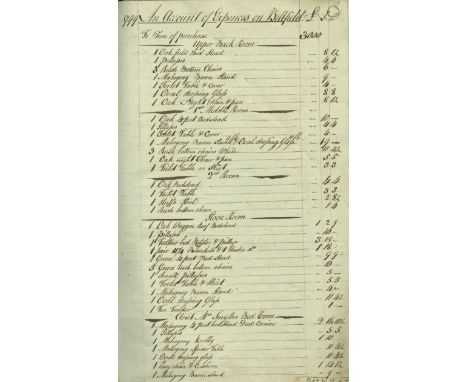 An Account of Expences on Billfield £ S D
To Fine of purchase 3000
Upper Back Room
1 Oak field Bed Stead
1 Pillasses 4 4
3 Rush Bottom Chairs 6
1 Mahogany Bason Stand 9
1 Toilet Table & Cover 4
1 Oval dressing Glass 8 8
1 Oak Night Chair & pan
1st Middle Room
1 Oak 4 post Bedstead 10
1 Pillasses 4 4
1 Toilet Table & Cover 4
1 Mahogany Bason Stand & Oval dressing Glass 19
3 Rush bottom chairs White
1 Oak night Chair & pan 5 5
1 Toilet Table & Skirt 3 3
2nd Room
1 Oak Bedstead 4 4
1 Toilet Table 3 3
1 Stool
1 Rush bottom chair 1 4
Store Room
1 Oak Waggon Roof Bedstead 1 2 9
1 Pillasses 10
1 Feather bed Bolster & Pillow 3 15
1 pair Blankets & 1 Under do 1 18
1 Green 4 post Bed Stead 9 9
5 Green rush bottom chairs 10
1 Small Pillasses 5
1 Toilet Table & Skirt 5 5
1 Mahogany Bason Stand 4
1 Oval dressing Glass
1 Tin Fender 1
Bed Room
1 Mahogany 4 post bedstead Deal Cornice
1 Pillasses 5 5
1 Mahogany 1 10
1 Mahogany Table
1 Oval dressing glass
1 Easy chair & Cushion
1 Mahogany Bason stand 9